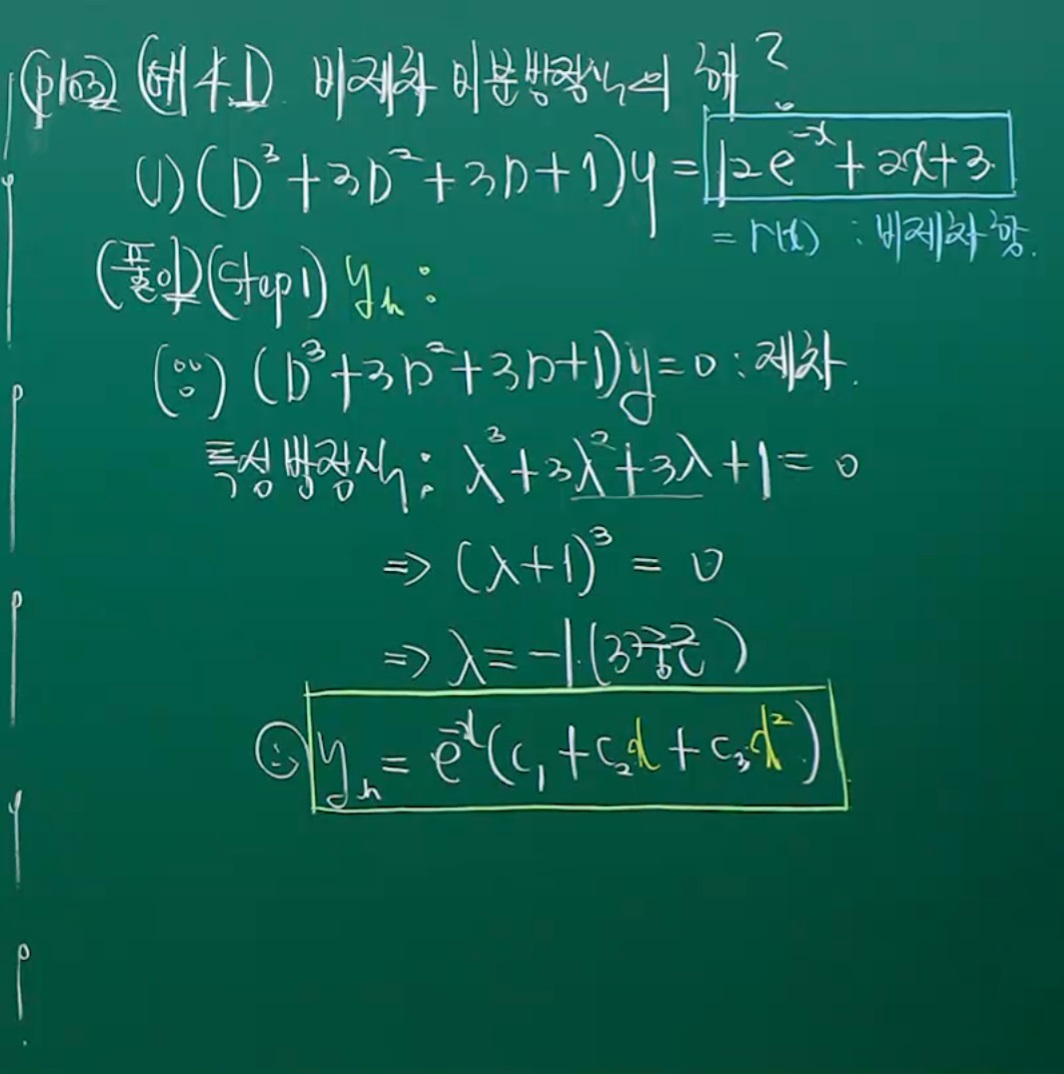 (p103) (예4.1) 비제차 미분방정식의 해?
(1) (D³+3D²+3D+1)y = 12e⁻ˣ+2x+3
= r(x) : 비제차항.
(풀이)(Step1) yₕ:
(∵) (D³+3D²+3D+1)y=0 : 제차.
특성방정식: λ³+3λ²+3λ+1=0
⇒ (λ+1)³ = 0
⇒ λ=-1 (3중근)
∴ yₕ = e⁻ˣ(c₁+c₂x+c₃x²)